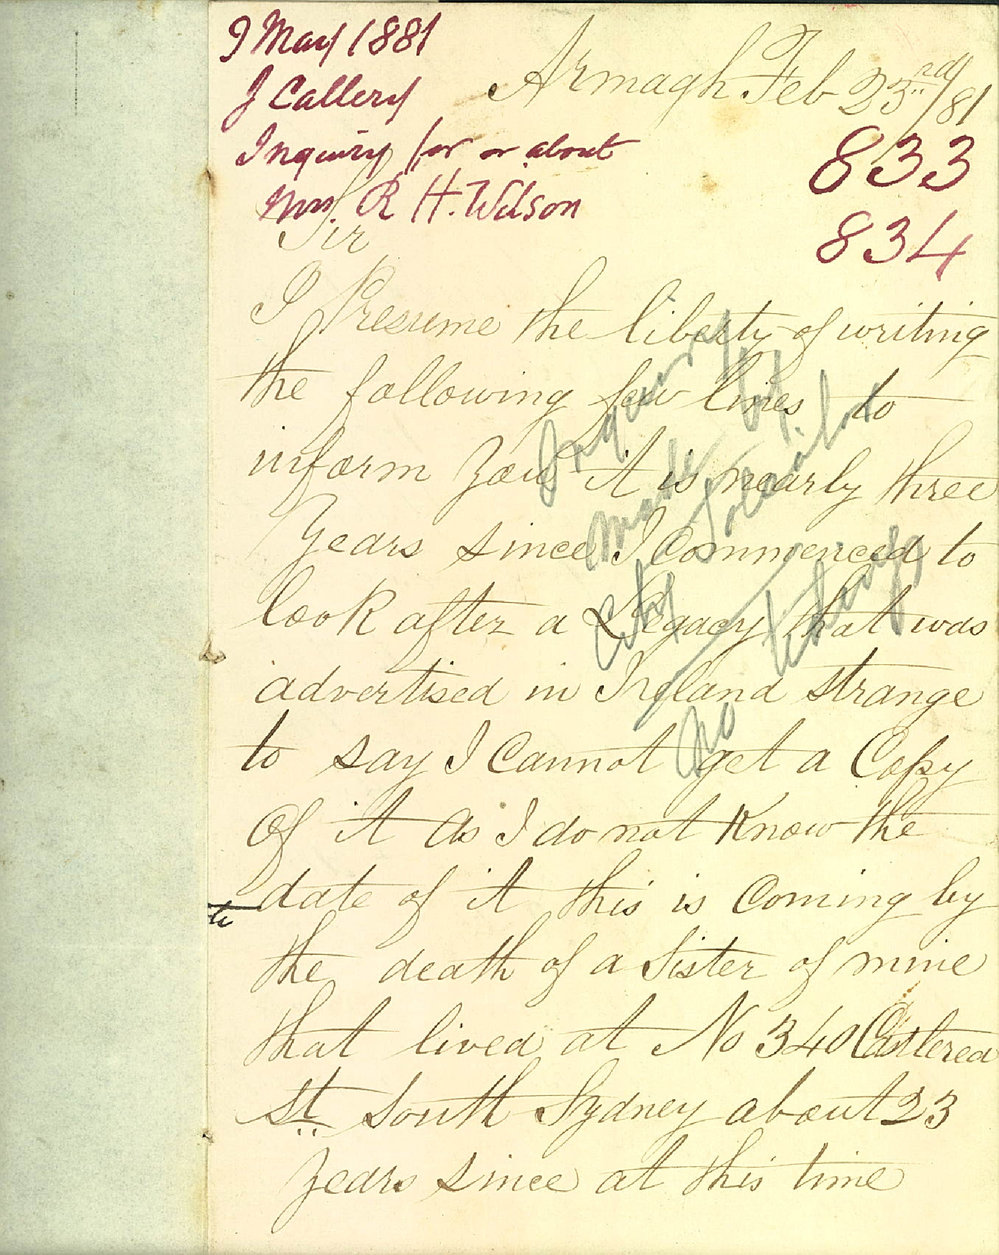 9 May 1881
J Callery
Inquiry for or about
Mrs. R H. Wilson
Armagh Feb 23rd/81
833
834
Sir
I Presume the liberty of writing
the following few lines to
inform you it is nearly three
Years since I Commenced to
look after a Legacy that was
advertised in Ireland strange
to say I Cannot get a Copy
Of it as I do not Know the
date of it this is Coming by
the death of a Sister of mine
that lived at No 340 Castlerea
St. South Sydney about 23
years since at this time
Inquiry
made
City
no
things